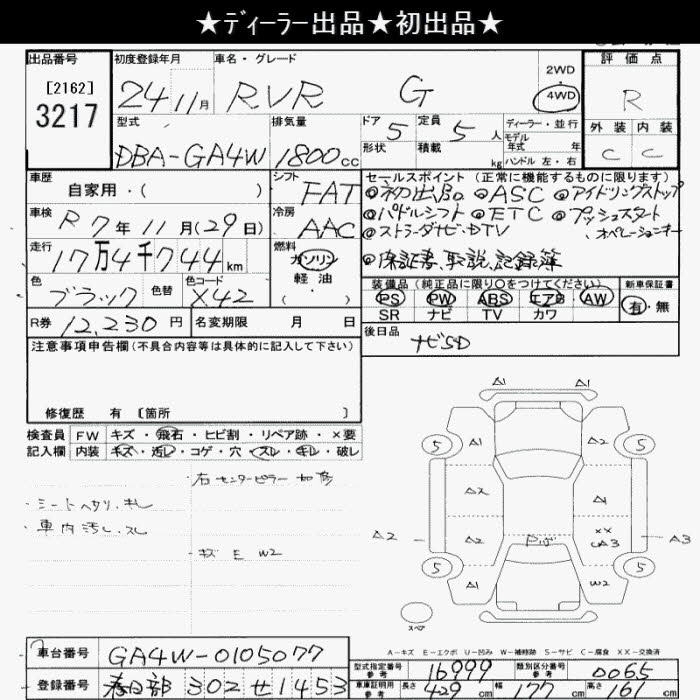 ★ディーラー出品★初出品★
出品番号 初度登録年月 車名・グレード 評価点
[2162]
3217
24年11月 RVR G 2WD 4WD R
型式 排気量 ドア 5 定員 5人 ディーラー・並行 外装 内装
DBA-GA4W 1800cc 形状 積載 kg モデル年式 年 ハンドル 左・右 C C
車歴 シフト セールスポイント (正常に機能するものに限ります)
自家用・( ) FAT ◎初出品 ◎ASC ◎アイドリングストップ
車検 R7年11月(29日) 冷房 AAC ◎パドルシフト ◎ETC ◎プッシュスタート
◎ストラーダナビ・DTV ・オペレーションキー
走行 17万4千744km 燃料 ガソリン 軽油 ( )
◎保証書、取説、記録簿
色 ブラック 色替 色コード X42
装備品(純正品に限り○をつけてください) 新車保証書
PS PW ABS エアB AW 有・無
SR ナビ TV カワ
R券 12,230円 名変期限 月 日
後日品 ナビSD
注意事項申告欄(不具合内容等は具体的に記入して下さい)
修復歴 有 〔箇所 〕
検査員 FW キズ・飛石・ヒビ割・リペア跡・×要
記入欄 内装 キズ・汚し・コゲ・穴・スレ・キレ・破レ
・右センターピラー
・シートヘタリ、
・車内汚し、スレ
・キズ E W2
A1 A1
5 A1 A2 5
A2 A1
A2 A2 XX A3 A3
5 A1 W2 5
スペア
A-キズ E-エクボ U-凹み W-補修跡 S-サビ C-腐食 XX-交換済
車台番号 GA4W-0105077
登録番号 春日部 302 せ 1453
型式指定番号 参考 16999 類別区分番号 参考 0065
車庫証明用 参考 長さ 429cm 幅 177cm 高さ 161cm